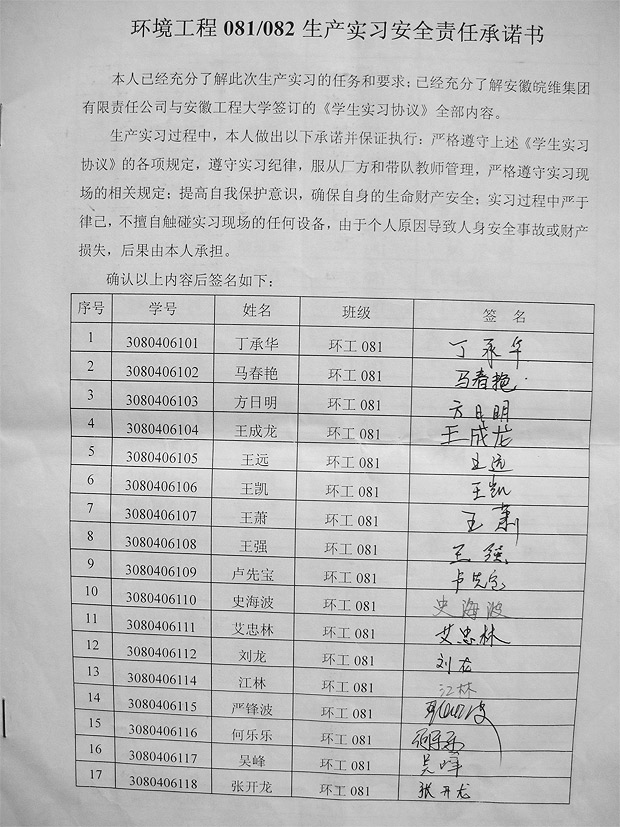 环境工程 081/082 生产实习安全责任承诺书
本人已经充分了解此次生产实习的任务和要求；已经充分了解安徽皖维集团
有限责任公司与安徽工程大学签订的《学生实习协议》全部内容。
生产实习过程中，本人做出以下承诺并保证执行：严格遵守上述《学生实习
协议》的各项规定，遵守实习纪律，服从厂方和带队教师管理，严格遵守实习现
场的相关规定；提高自我保护意识，确保自身的生命财产安全；实习过程中严于
律己，不擅自触碰实习现场的任何设备，由于个人原因导致人身安全事故或财产
损失，后果由本人承担。
确认以上内容后签名如下：
序号 学号 姓名 班级 签 名
1 3080406101 丁承华 环工 081 丁承华
2 3080406102 马春艳 环工 081 马春艳
3 3080406103 方日明 环工 081 方日明
4 3080406104 王成龙 环工 081 王成龙
5 3080406105 王远 环工 081 王远
6 3080406106 王凯 环工 081 王凯
7 3080406107 王萧 环工 081 王萧
8 3080406108 王强 环工 081 王强
9 3080406109 卢先宝 环工 081 卢先宝
10 3080406110 史海波 环工 081 史海波
11 3080406111 艾忠林 环工 081 艾忠林
12 3080406112 刘龙 环工 081 刘龙
13 3080406114 江林 环工 081 江林
14 3080406115 严锋波 环工 081
15 3080406116 何乐乐 环工 081 何乐乐
16 3080406117 吴峰 环工 081 吴峰
17 3080406118 张开龙 环工 081 张开龙